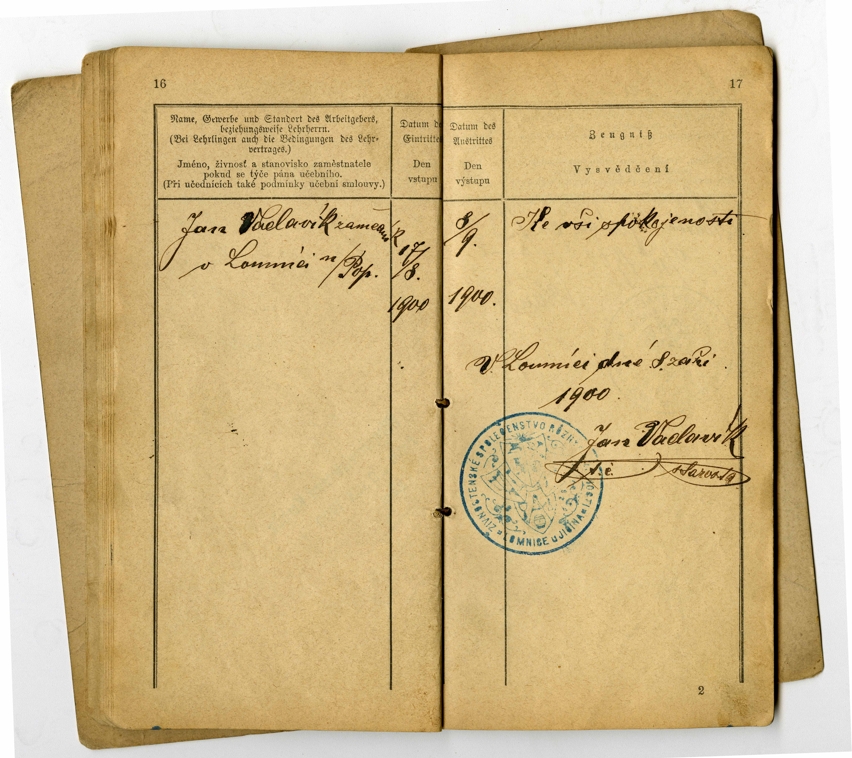 16
Name, Gewerbe und Standort des Arbeitgebers,
beziehungsweise Lehrherrn.
(Bei Lehrlingen auch die Bedingungen des Lehr-
vertrages.)
Jméno, živnosť a stanovisko zaměstnatele
pokud se týče pána učebního.
(Při učednících také podmínky učební smlouvy.)
Datum des
Eintrittes
Den
vstupu
Jan Václavík zámečník
v Lomnici n/Pop.
17/8.
1900
17
Datum des
Austrittes
Den
výstupu
Zeugniß
Vysvědčení
8/9.
1900.
Ke vší spokojenosti
V Lomnici dné 8. září
1900.
Jan Václavík
starosta
ŽIVNOSTENSKÉ SPOLEČENSTVO
LOMNICE U JIČÍNA
2